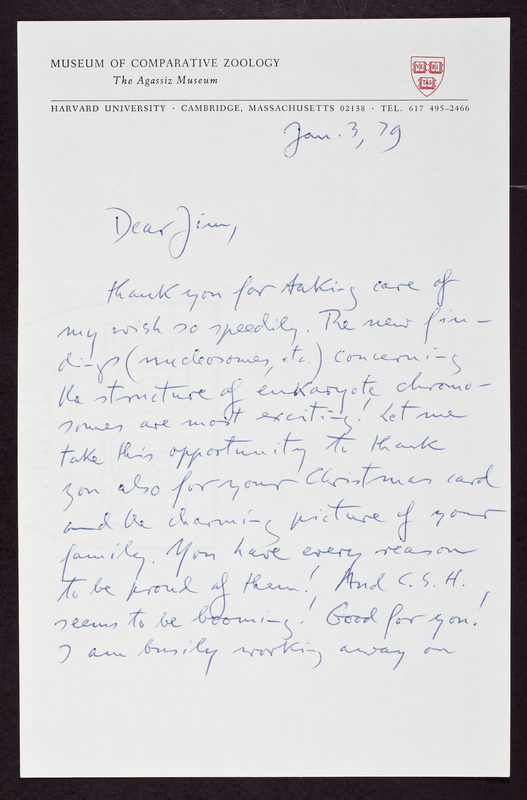 MUSEUM OF COMPARATIVE ZOOLOGY
The Agassiz Museum
VE RI TAS
HARVARD UNIVERSITY · CAMBRIDGE, MASSACHUSETTS 02138 · TEL. 617 495-2466
Jan. 3, 79
Dear Jim,
thank you for taking care of
my wish so speedily. The new fin-
dings (nucleosomes, etc.) concerning
the structure of eukaryote chromo-
somes are most exciting! Let me
take this opportunity to thank
you also for your Christmas card
and the charming picture of your
family. You have every reason
to be proud of them! And C.S.H.
seems to be booming! Good for you!
I am busily working away on